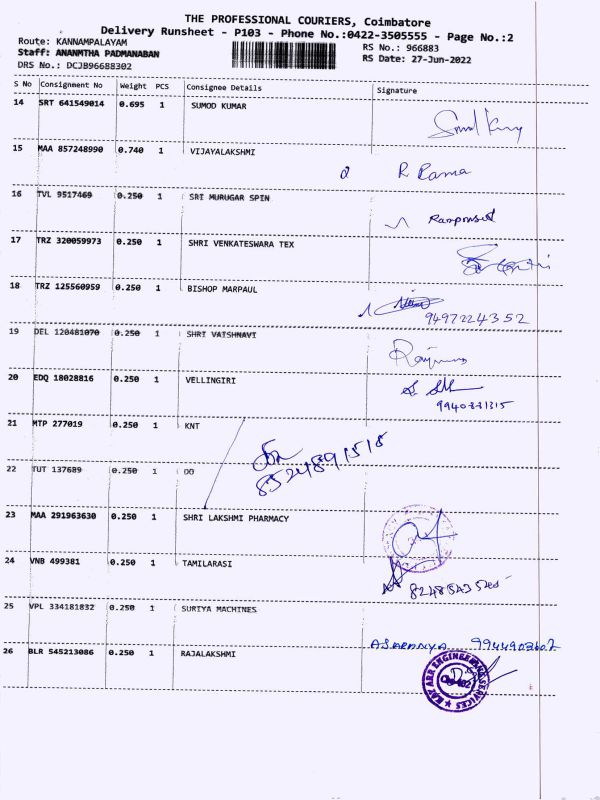 THE PROFESSIONAL COURIERS, Coimbatore
Delivery Runsheet - P103 - Phone No.:0422-3505555 - Page No.:2
Route: KANNAMPALAYAM
RS No.: 966883
Staff: ANANMTHA PADMANABAN
RS Date: 27-Jun-2022
DRS No.: DCJB96688302
S No Consignment No Weight PCS Consignee Details Signature
14 SRT 641549014 0.695 1 SUMOD KUMAR
15 MAA 857248990 0.740 1 VIJAYALAKSHMI
R Rama
16 TVL 9517469 0.250 1 SRI MURUGAR SPIN
17 TRZ 320059973 0.250 1 SHRI VENKATESWARA TEX
18 TRZ 125560959 0.250 1 BISHOP MARPAUL
9497224352
19 DEL 120481070 0.250 1 SHRI VAISHNAVI
20 EDQ 18028816 0.250 1 VELLINGIRI
9940831315
21 MTP 277019 0.250 1 KNT
22 TUT 137689 0.250 1 DO
23 MAA 291963630 0.250 1 SHRI LAKSHMI PHARMACY
24 VNB 499381 0.250 1 TAMILARASI
25 VPL 334181832 0.250 1 SURIYA MACHINES
26 BLR 545213086 0.250 1 RAJALAKSHMI